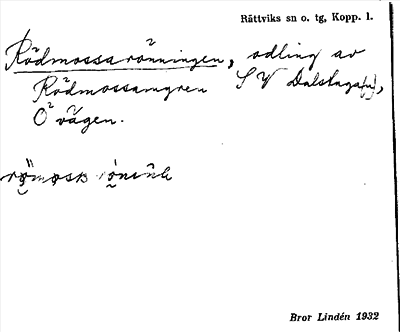 Rättviks sn o. tg, Kopp. l.
Rödmossarönningen, odling av
Rödmossamyren S V Dalstuga(n),
O vägen.
Bror Lindén 1932